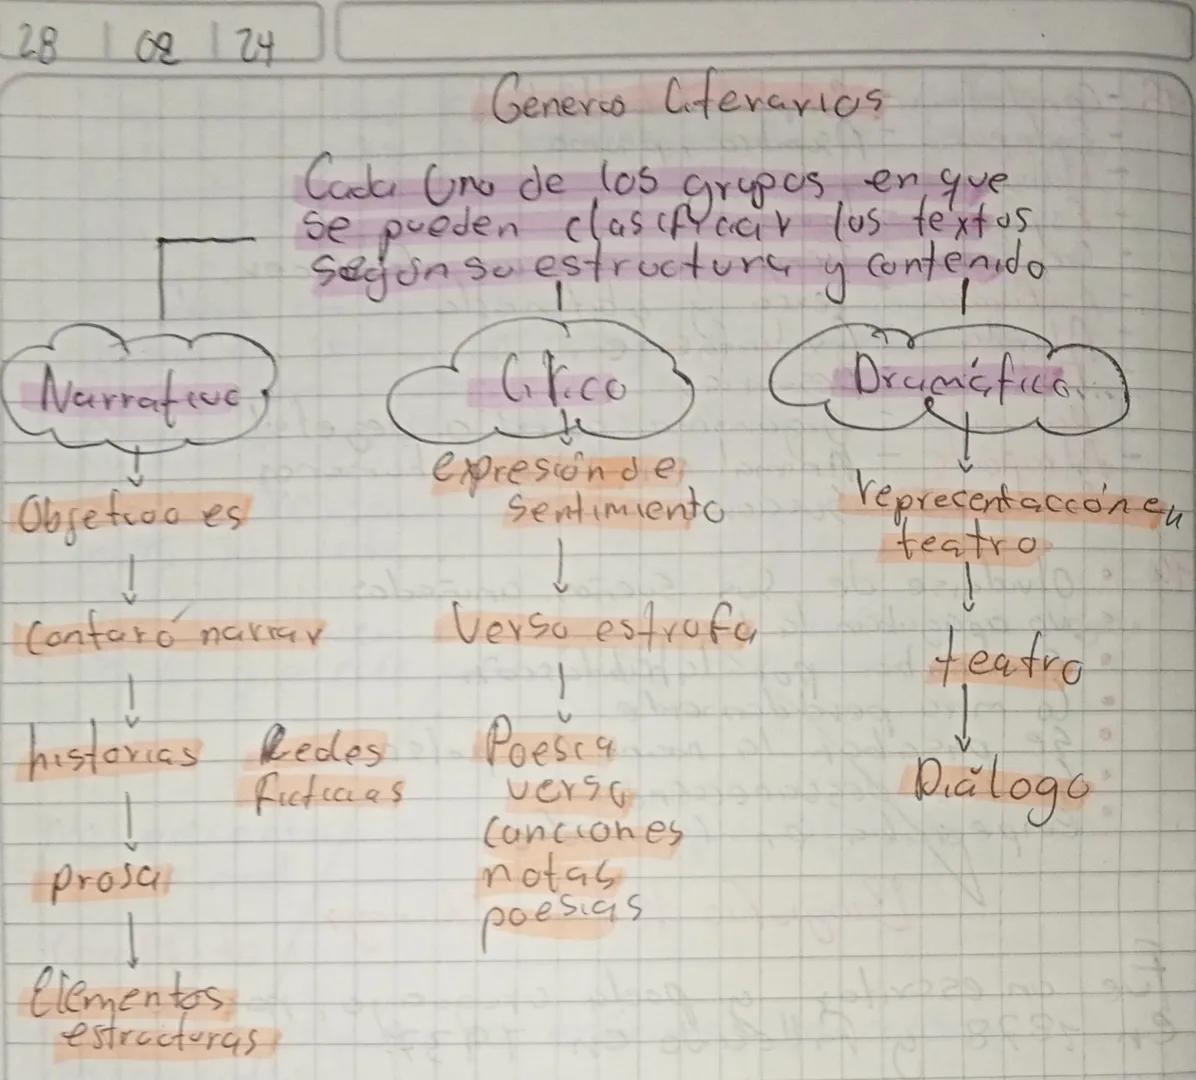 28 | 08 | 24
Generos Literarios
Cada Uno de los grupos en que
se pueden clasificar los textos
según su estructura y contenido
Narrativo
Lírico
Dramático
Objetivo es
Contar ó narrar
historias
Redes
ficticias
prosa
Elementos
estructuras
expresión de
sentimiento
Verso estrofa
Poesia
verso
canciones
notas
poesias
representacción en
teatro
teatro
Diálogo